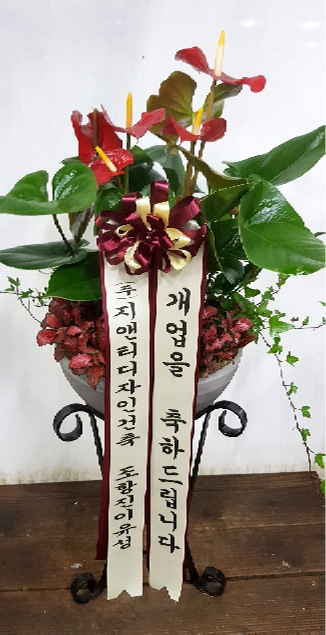 개업을 축하드립니다
투지앤티디자인건축 도항진이유성